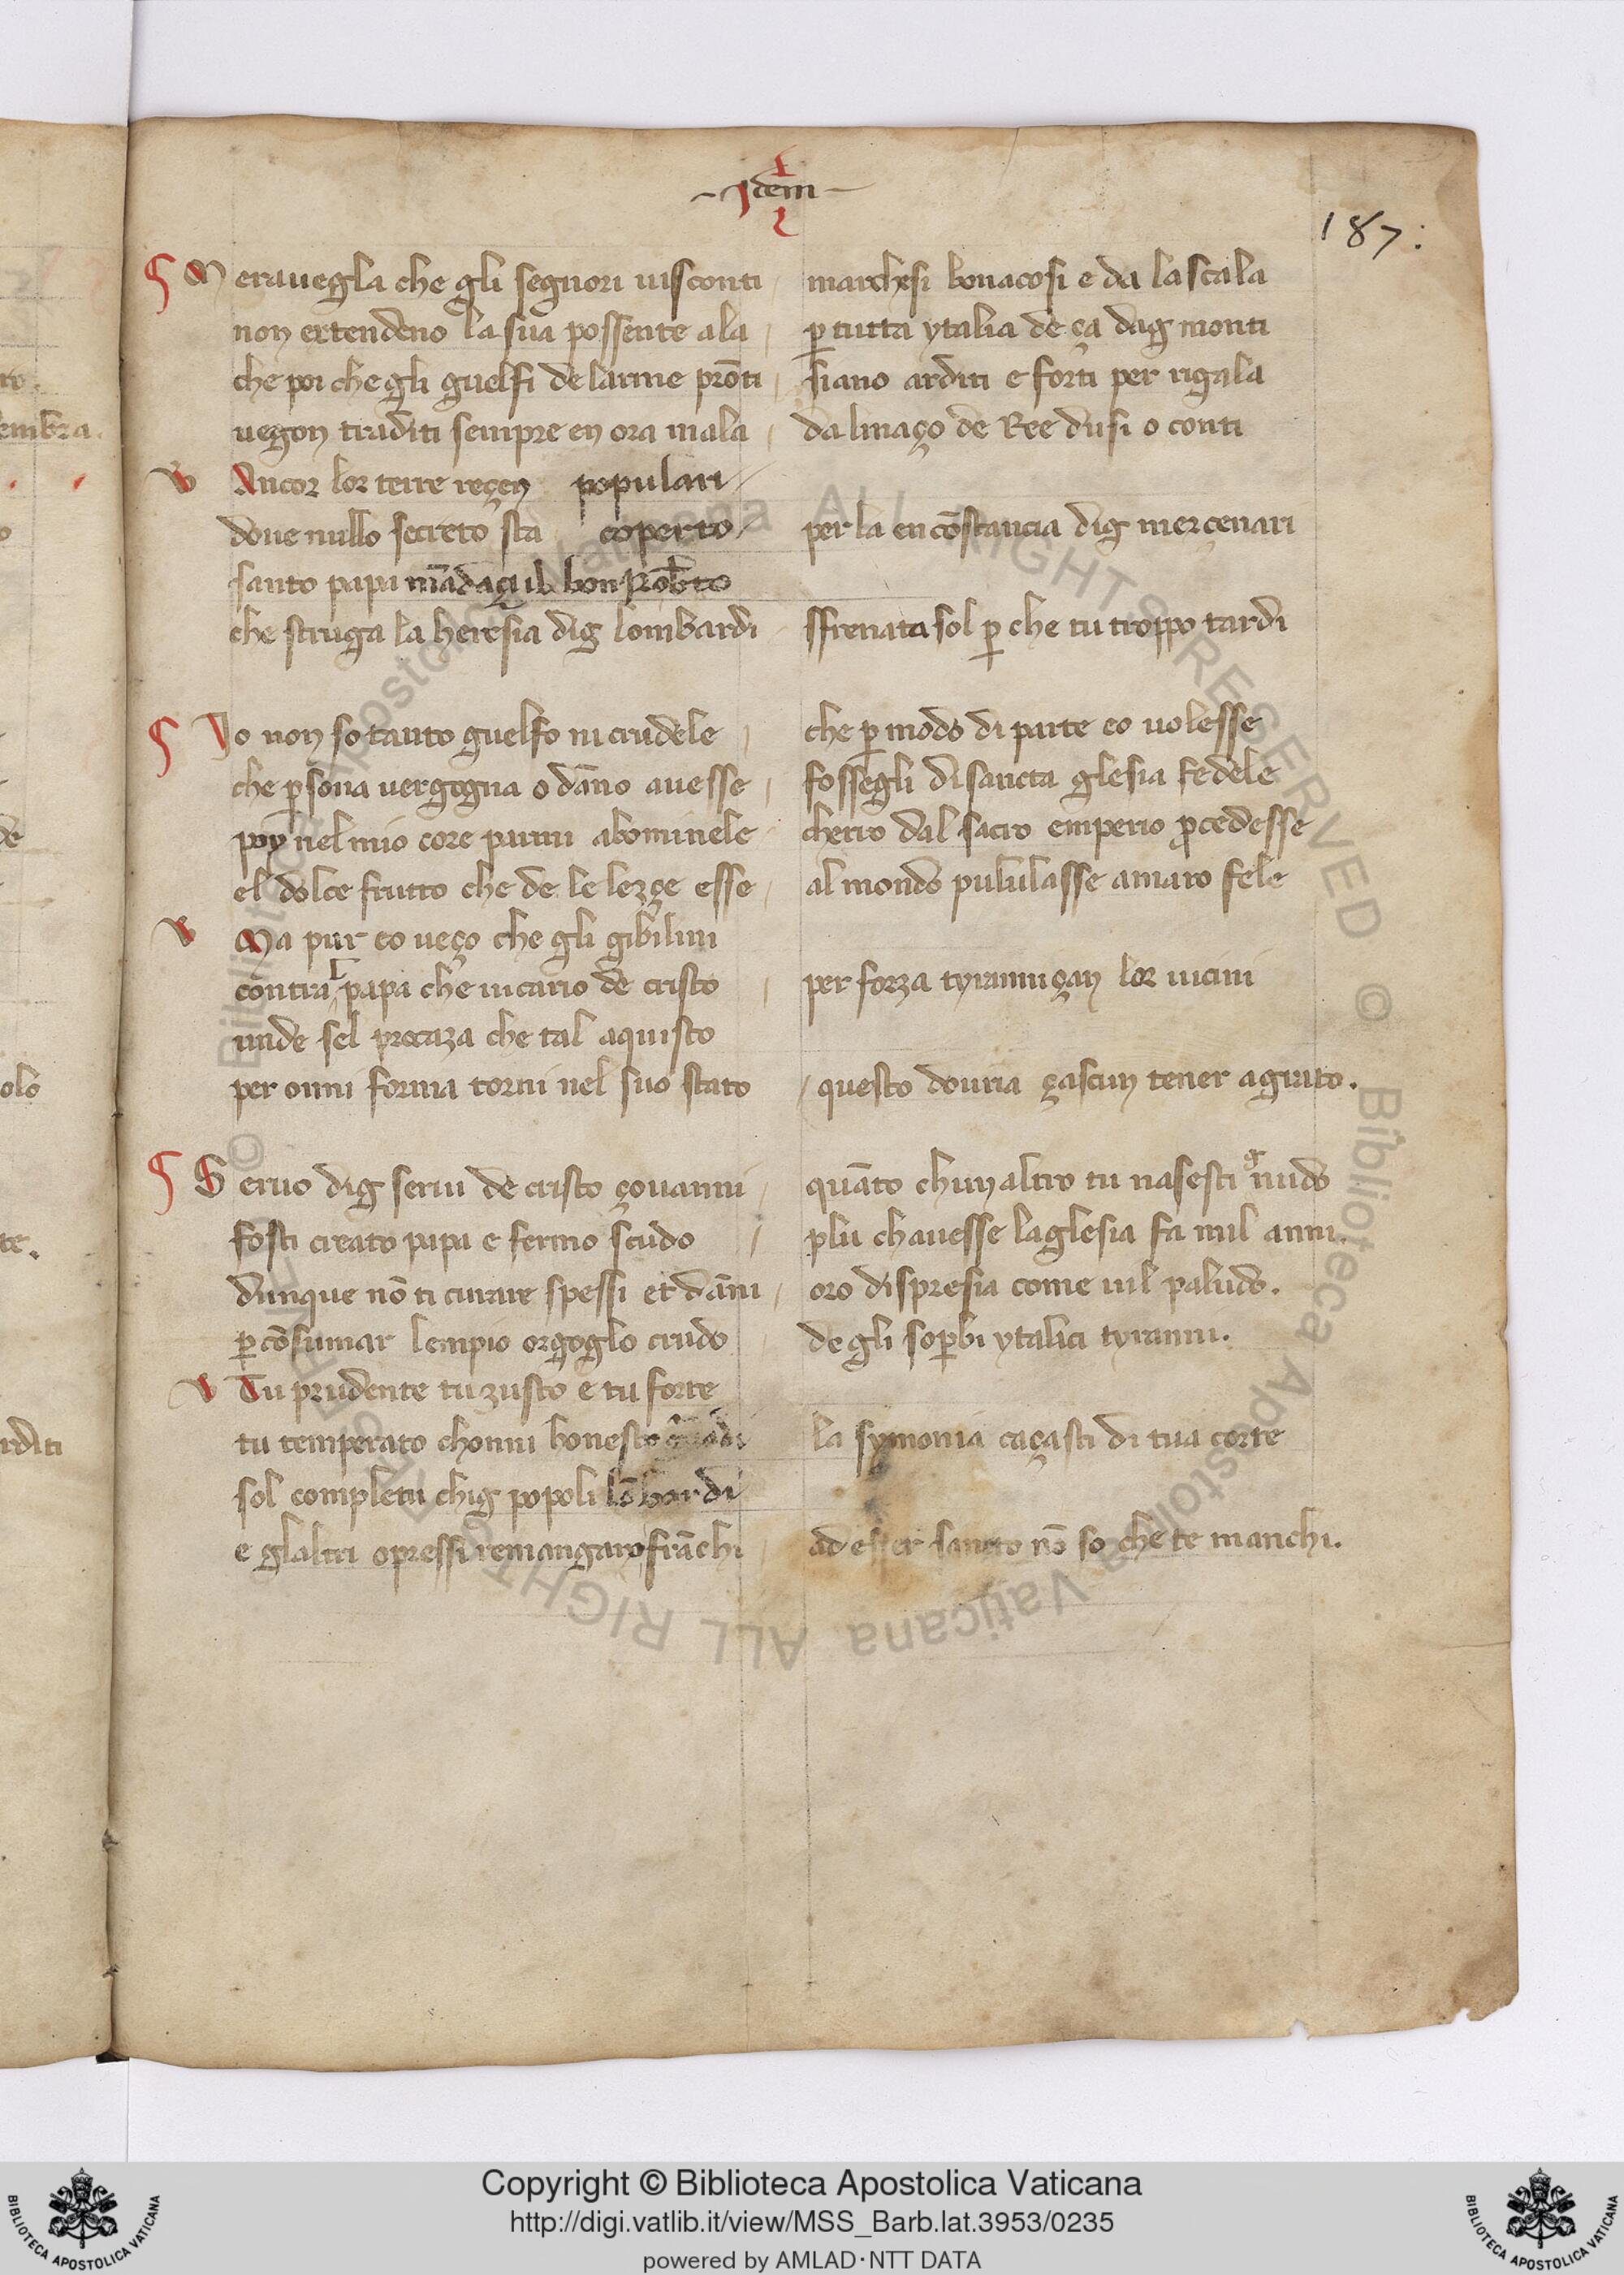 Idem
187:
Merauegla che gli segnori uisconti marchesi bonacosi e da la scala
non extendeno la sua possente ala p̱ tutta ytalia de ça dag monti
che poi che gli guelfi de larme prōti siano arditi e forti per rigala
uegon traditi sempre en ora mala da linaço de Ree dusi o conti
Ancor lor terre reçen populari
doue nullo secreto sta coperto per la en cōstancia dig merçenari
santo papa māda qui lo bon Rob̄to
che struga la heresia dig lombardi sfrenata sol p̱ che tu troppo tardi
Io non so tanto guelfo ni crudele che p̱ modo di parte eo uolesse
che p̱sona uergogna o dāno auesse fossegli di sancta glesia fedele
poy nel mio core parui abominele cherro dal sacro emperio ꝓcedesse
el dolce frutto che de le lezçe esse al mondo pululasse amaro fele
Ma pur eo ueço che gli gibilini
contra l papa che uicario de cristo per forza tyranniçan lor uicini
unde sel procaza che tal aquisto
per onni forma torni nel suo stato questo douria çascun tener agrato.
Seruo dig serui de cristo çouanni quāto chun altro tu nasesti nudo
fosti creato papa e fermo scudo plu chauesse laglesia fa mil anni.
dunque nō ti curare spessi et dāni oro dispresia come uil paludo.
p̱ cōsumar lempio orgoglo crudo de gli sop̱bi ytalici tyranni.
Tu prudente tu zusto e tu forte
tu temperato chonni honesto la symonia caçasti di tua corte
sol completu chig popoli lōbardi
e glaltri opressi remangaro frāchi ad esser sancto nō so che te manchi.
Copyright © Biblioteca Apostolica Vaticana
http://digi.vatlib.it/view/MSS_Barb.lat.3953/0235
powered by AMLAD·NTT DATA